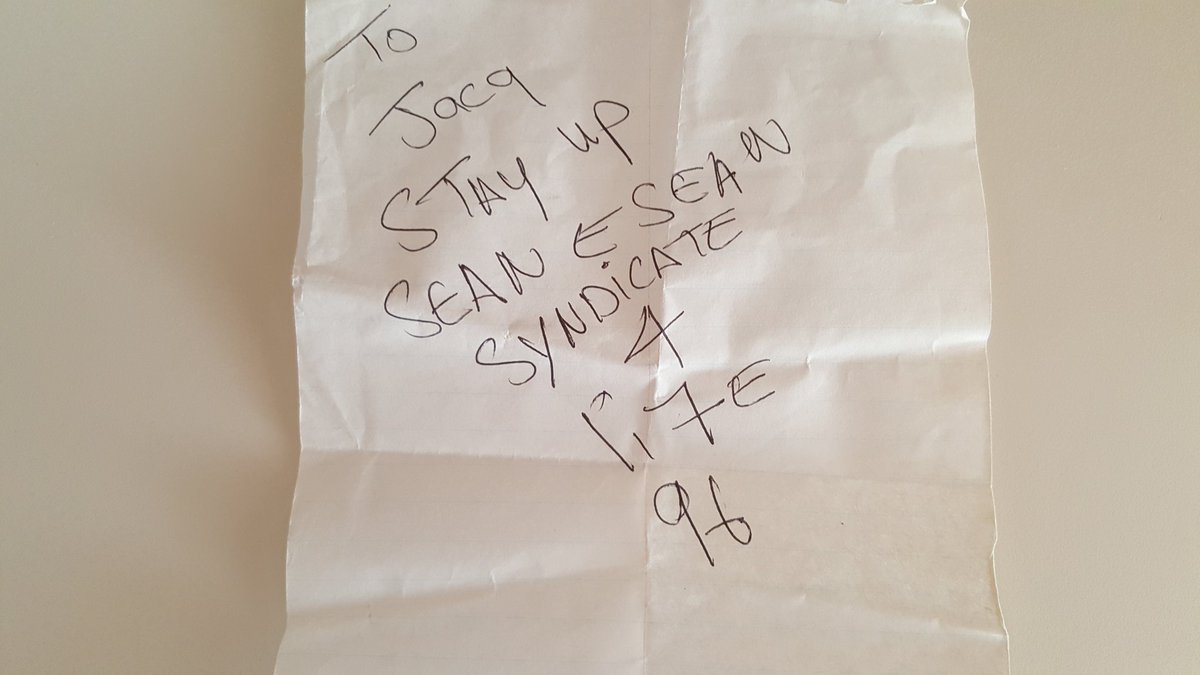 To
Jacq
STAY up
SEAN E SEAN
SYNDiCATE
4
LiFE
96